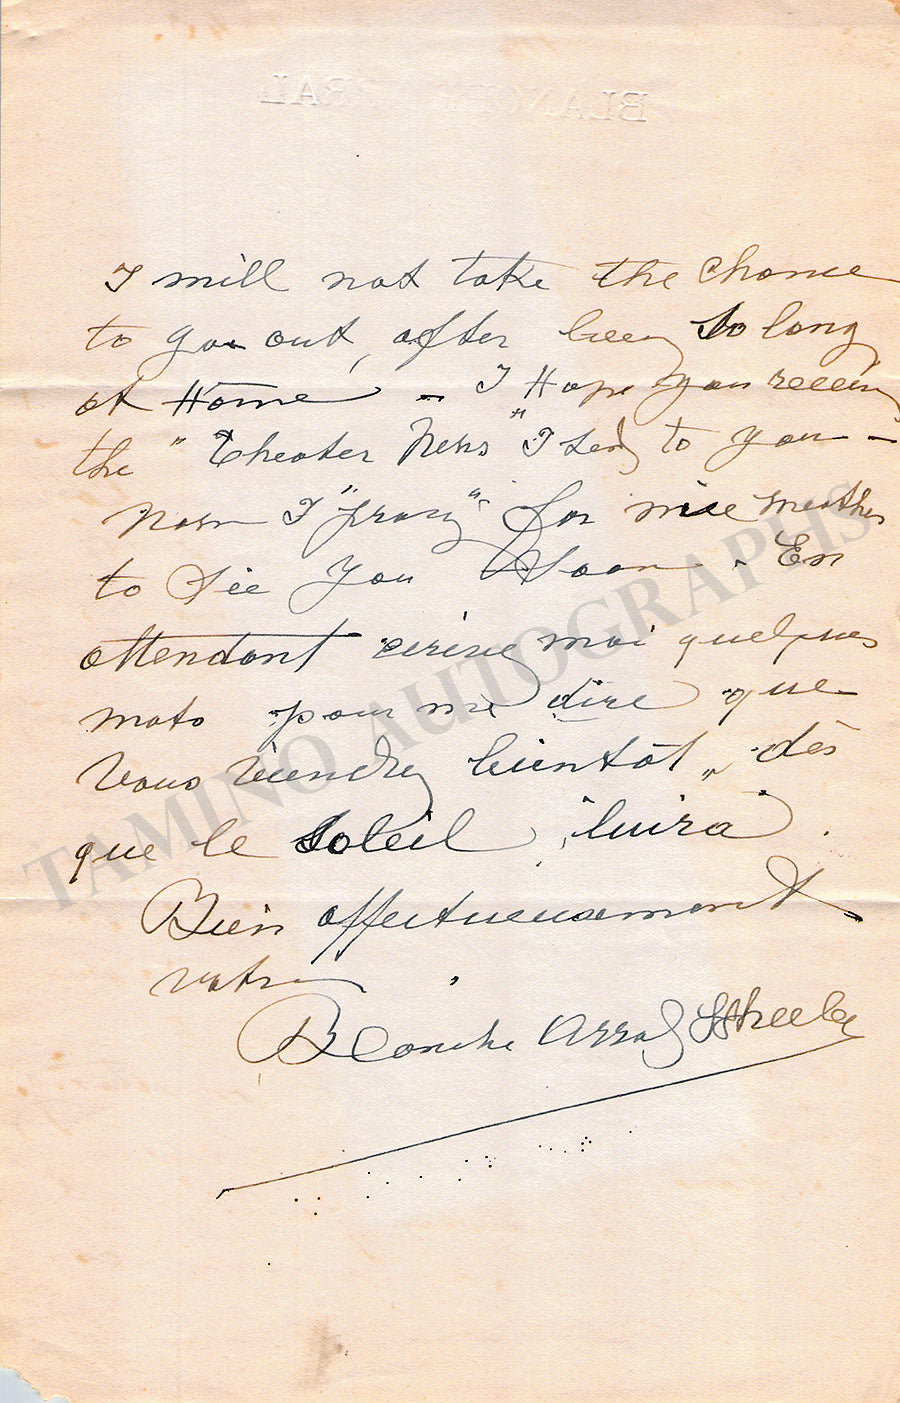 BLANCHE ARRAL
I will not take the chance
to go out, after been so long
at Home – I Hope you receiv
the "Theater News" I send to you –
Now I "pray" for nice weather
to see you soon. En
attendant écrivez moi quelques
mots pour me dire que
vous viendrez bientôt, dès
que le soleil luira.
Bien affectueusement
votre
Blanche Arral
TAMINO AUTOGRAPHS